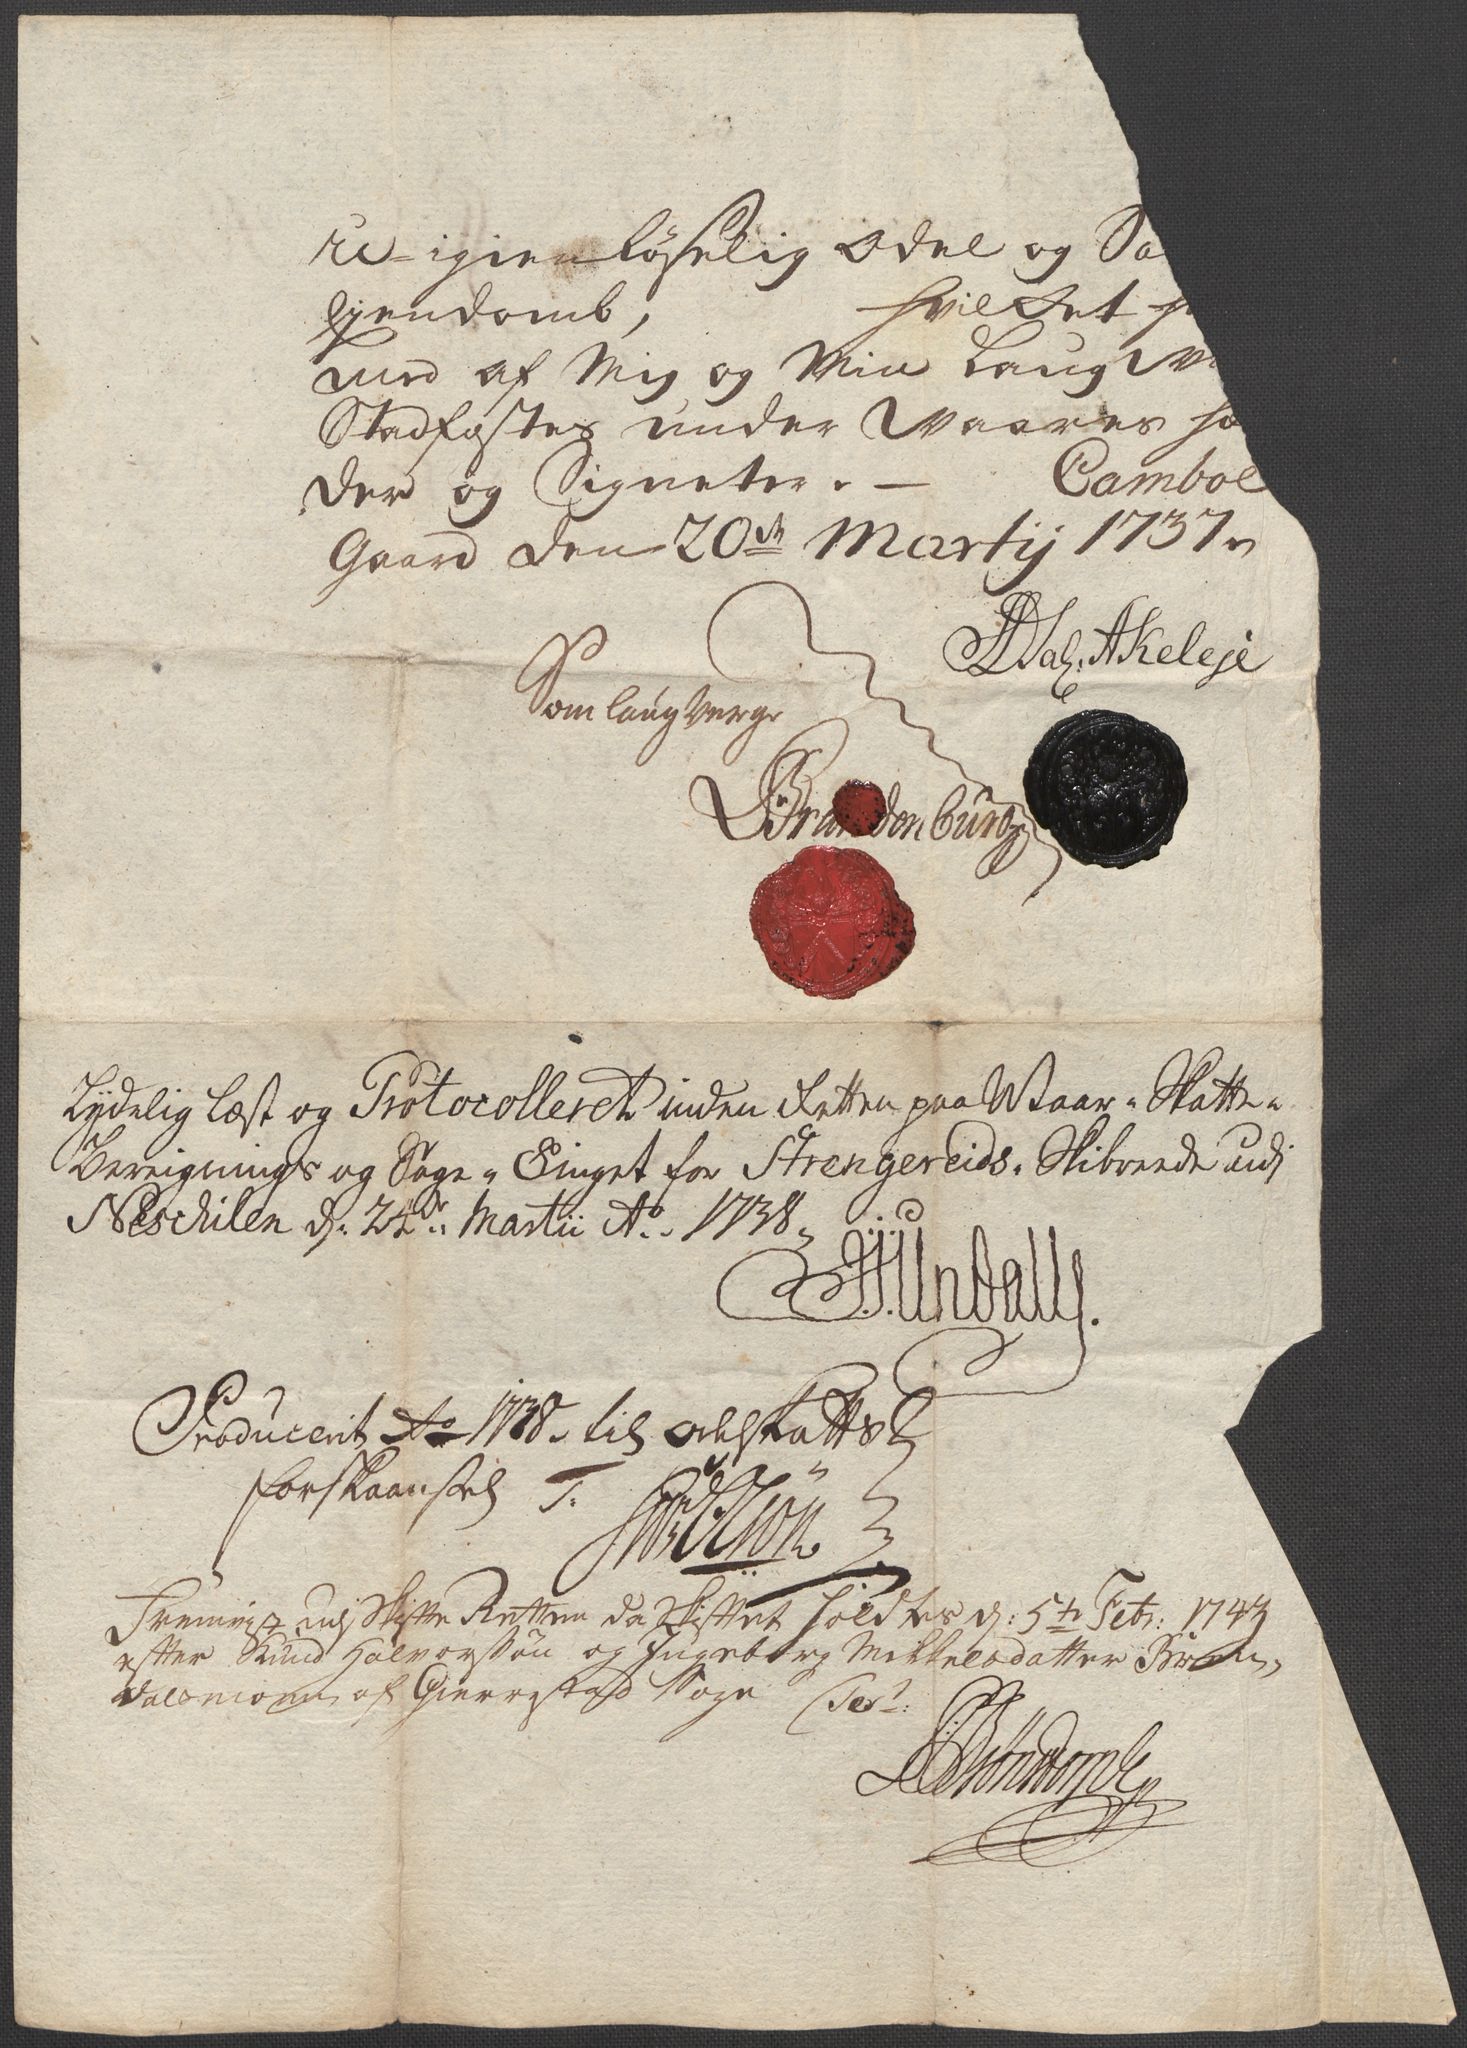 re igienløselig Odel og Sa
Ejendomb, hvilket
med af Mig og Min Laug V
Stadfæstes under Waares h
der og Signeter. — Camboe
Gaard den 20de Martij 1737.
Sal. Akeleje
Som laug verge
Brandenburg
Lydelig læst og Protocolleret inden Retten paa Waar- Skatte-
Bereignings og Sage- Tinget for Strengereids- Skibrede udj
Neschilen d: 24de Martii Ao. 1738
Undall
Producerit Ao 1738 til odelskattes
forskaansel T.
Fremvist udj Skifte Retten da Skiftet holdtes d: 5te Febr: 1743
efter Knud Halvorssøn og Ingeborg Mikkelsdatter
af Gierrestad Sogn Test: